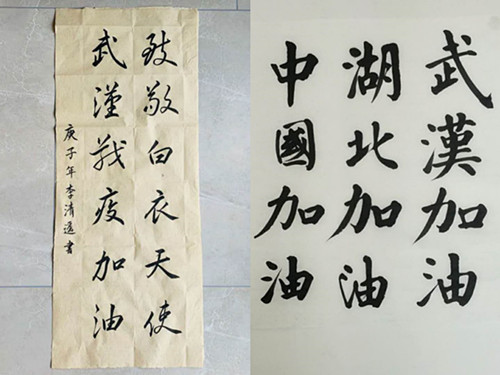 致敬白衣天使
武漢戰疫加油
庚子年李清遥書
武漢加油
湖北加油
中國加油